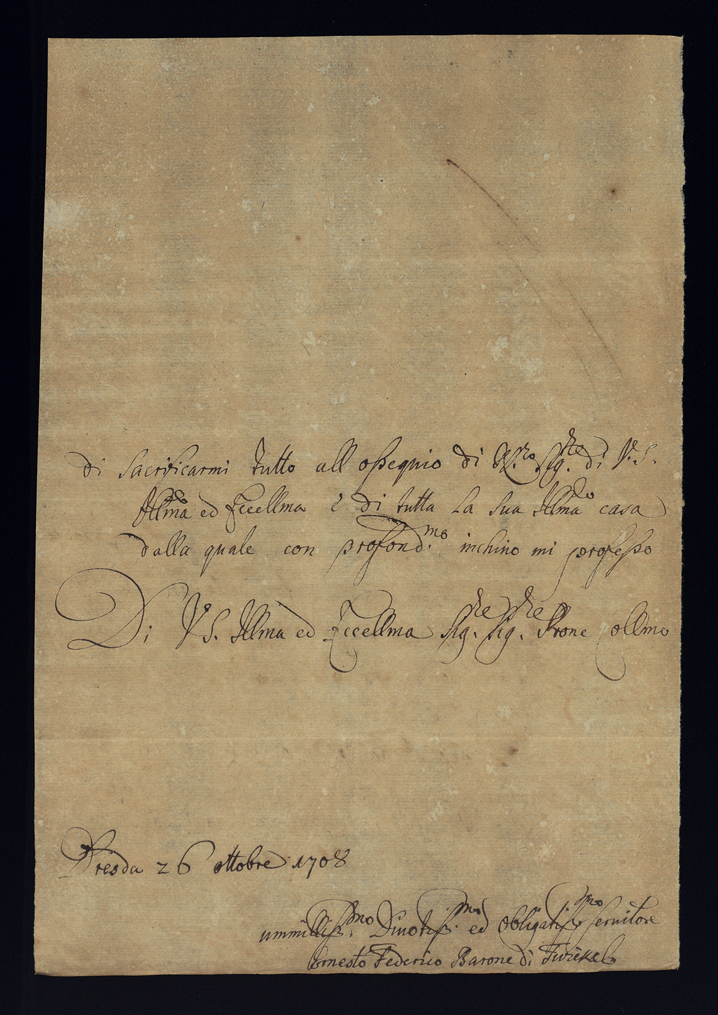 di Sacrificarmi tutto all ossequio di Sig.re di V. S.
Illma ed Eccellma e di tutta la sua Illma casa
dalla quale con profond.mo inchino mi professo
Di V S. Illma ed Eccellma Sig.re Sig.re Prone Collmo
Dresda 26 ottobre 1708
ummilliss.mo Divotiss.mo ed obligatiss.mo servitore
Ernesto Federico Barone di